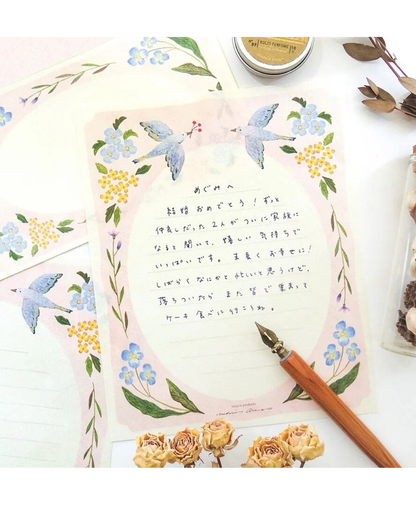 めぐみへ
結婚おめでとう！ずっと
仲良しだった2人がついに家族に
なると聞いて、嬉しい気持ちで
いっぱいです。末長くお幸せに！
しばらくなにかと忙しいと思うけど、
落ちついたらまた皆で集まって
ケーキ食べに行こうね。